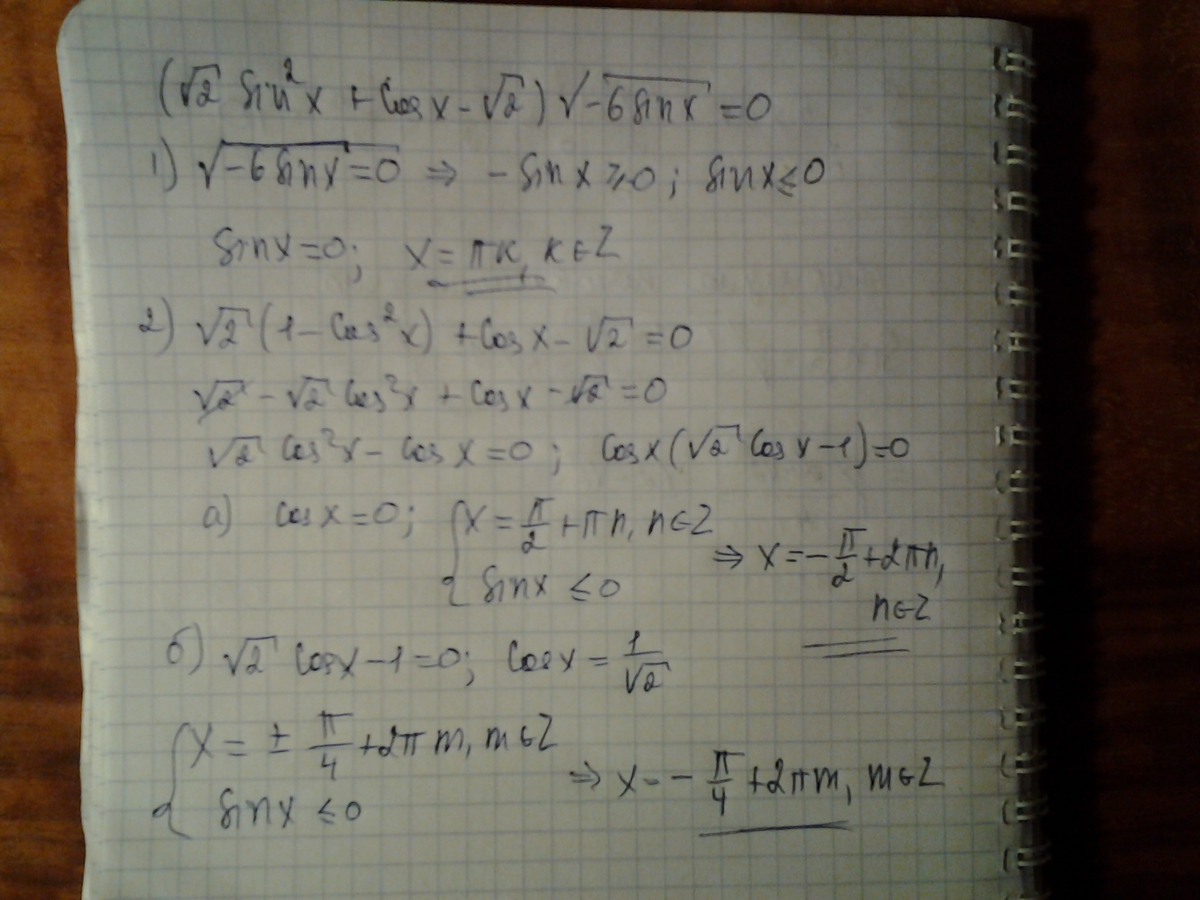 (√2 sin²x + cos x - √2) √-6 sin x = 0
1) √-6 sin x = 0 ⇒ - sin x ⩾ 0; sin x ≤ 0
sin x = 0; x = πk, k ∈ Z
2) √2 (1 - cos²x) + cos x - √2 = 0
√2 - √2 cos²x + cos x - √2 = 0
√2 cos²x - cos x = 0; cos x (√2 cos x - 1) = 0
а) cos x = 0; { x = π/2 + πn, n ∈ Z
sin x ≤ 0 ⇒ x = - π/2 + 2πn,
n ∈ Z
б) √2 cos x - 1 = 0; cos x = 1/√2
{ x = ± π/4 + 2πm, m ∈ Z
sin x ≤ 0 ⇒ x = - π/4 + 2πm, m ∈ Z